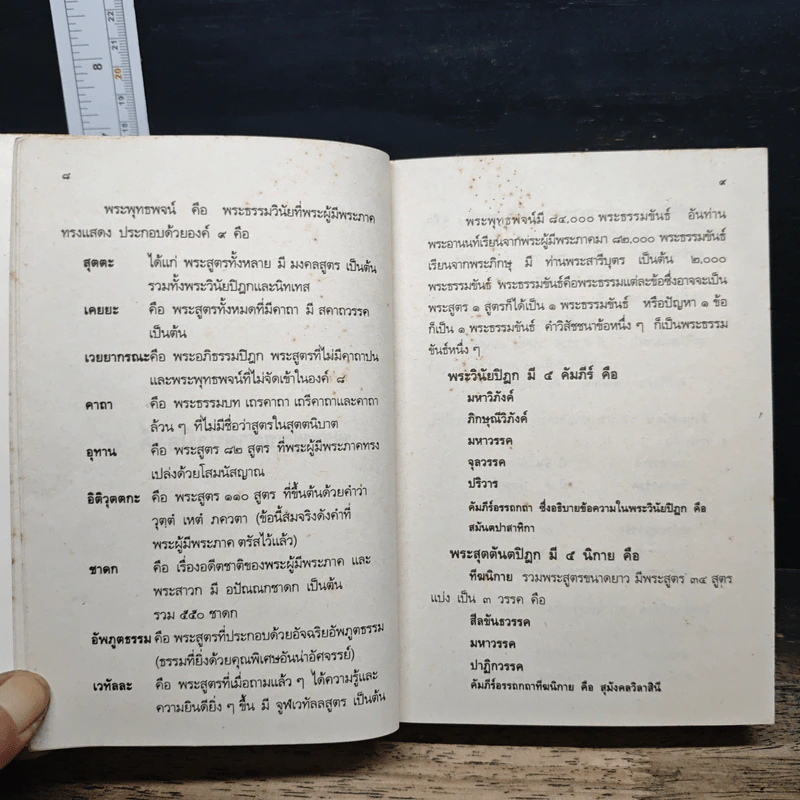 22
21
8
20
19
18
๘
พระพุทธพจน์ คือ พระธรรมวินัยที่พระผู้มีพระภาค
ทรงแสดง ประกอบด้วยองค์ ๙ คือ
สุตตะ ได้แก่ พระสูตรทั้งหลาย มี มงคลสูตร เป็นต้น
รวมทั้งพระวินัยปิฎกและนิทเทส
เคยยะ คือ พระสูตรทั้งหมดที่มีคาถา มี สคาถวรรค
เป็นต้น
เวยยากรณะ คือ พระอภิธรรมปิฎก พระสูตรที่ไม่มีคาถาปน
และพระพุทธพจน์ที่ไม่จัดเข้าในองค์ ๘
คาถา คือ พระธรรมบท เถรคาถา เถรีคาถาและคาถา
ล้วน ๆ ที่ไม่มีชื่อว่าสูตรในสุตตนิบาต
อุทาน คือ พระสูตร ๘๒ สูตร ที่พระผู้มีพระภาคทรง
เปล่งด้วยโสมนัสญาณ
อิติวุตตกะ คือ พระสูตร ๑๑๐ สูตร ที่ขึ้นต้นด้วยคำว่า
วุตฺตํ เหตํ ภควตา (ข้อนี้สมจริงดังคำที่
พระผู้มีพระภาค ตรัสไว้แล้ว)
ชาดก คือ เรื่องอดีตชาติของพระผู้มีพระภาค และ
พระสาวก มี อปัณณกชาดก เป็นต้น
รวม ๕๕๐ ชาดก
อัพภูตธรรม คือ พระสูตรที่ประกอบด้วยอัจฉริยอัพภูตธรรม
(ธรรมที่ยิ่งด้วยคุณพิเศษอันน่าอัศจรรย์)
เวทัลละ คือ พระสูตรที่เมื่อถามแล้ว ๆ ได้ความรู้และ
ความยินดียิ่ง ๆ ขึ้น มี จูฬเวทัลลสูตร เป็นต้น
๙
พระพุทธพจน์มี ๘๔,๐๐๐ พระธรรมขันธ์ อันท่าน
พระอานนท์เรียนจากพระผู้มีพระภาคมา ๘๒,๐๐๐ พระธรรมขันธ์
เรียนจากพระภิกษุ มี ท่านพระสารีบุตร เป็นต้น ๒,๐๐๐
พระธรรมขันธ์ พระธรรมขันธ์คือพระธรรมแต่ละข้อซึ่งอาจจะเป็น
พระสูตร ๑ สูตรก็ได้เป็น ๑ พระธรรมขันธ์ หรือปัญหา ๑ ข้อ
ก็เป็น ๑ พระธรรมขันธ์ คำวิสัชชนาข้อหนึ่ง ๆ ก็เป็นพระธรรม
ขันธ์หนึ่ง ๆ
พระวินัยปิฎก มี ๕ คัมภีร์ คือ
มหาวิภังค์
ภิกษุณีวิภังค์
มหาวรรค
จุลวรรค
ปริวาร
คัมภีร์อรรถกถา ซึ่งอธิบายข้อความในพระวินัยปิฎก คือ
สมันตปาสาทิกา
พระสุตตันตปิฎก มี ๕ นิกาย คือ
ทีฆนิกาย รวมพระสูตรขนาดยาว มีพระสูตร ๓๔ สูตร
แบ่ง เป็น ๓ วรรค คือ
สีลขันธวรรค
มหาวรรค
ปาฏิกวรรค
คัมภีร์อรรถกถาทีฆนิกาย คือ สุมังคลวิลาสินี